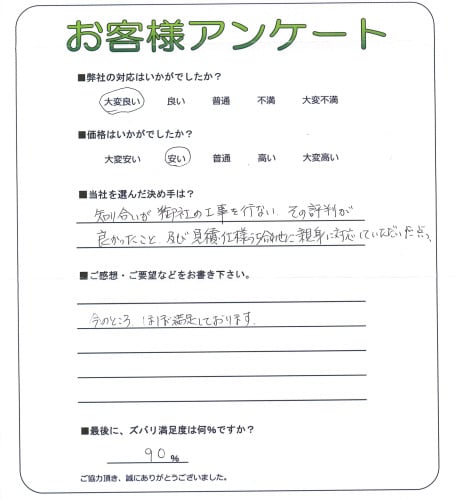 お客様アンケート
■弊社の対応はいかがでしたか？
大変良い 良い 普通 不満 大変不満
■価格はいかがでしたか？
大変安い 安い 普通 高い 大変高い
■当社を選んだ決め手は？
知り合いが御社の工事を行ない、その評判が
良かったこと、及び見積、仕様打合他に親身に対応していただいた点。
■ご感想・ご要望などをお書き下さい。
今のところ、ほぼ満足しております。
■最後に、ズバリ満足度は何%ですか？
90 %
ご協力頂き、誠にありがとうございました。